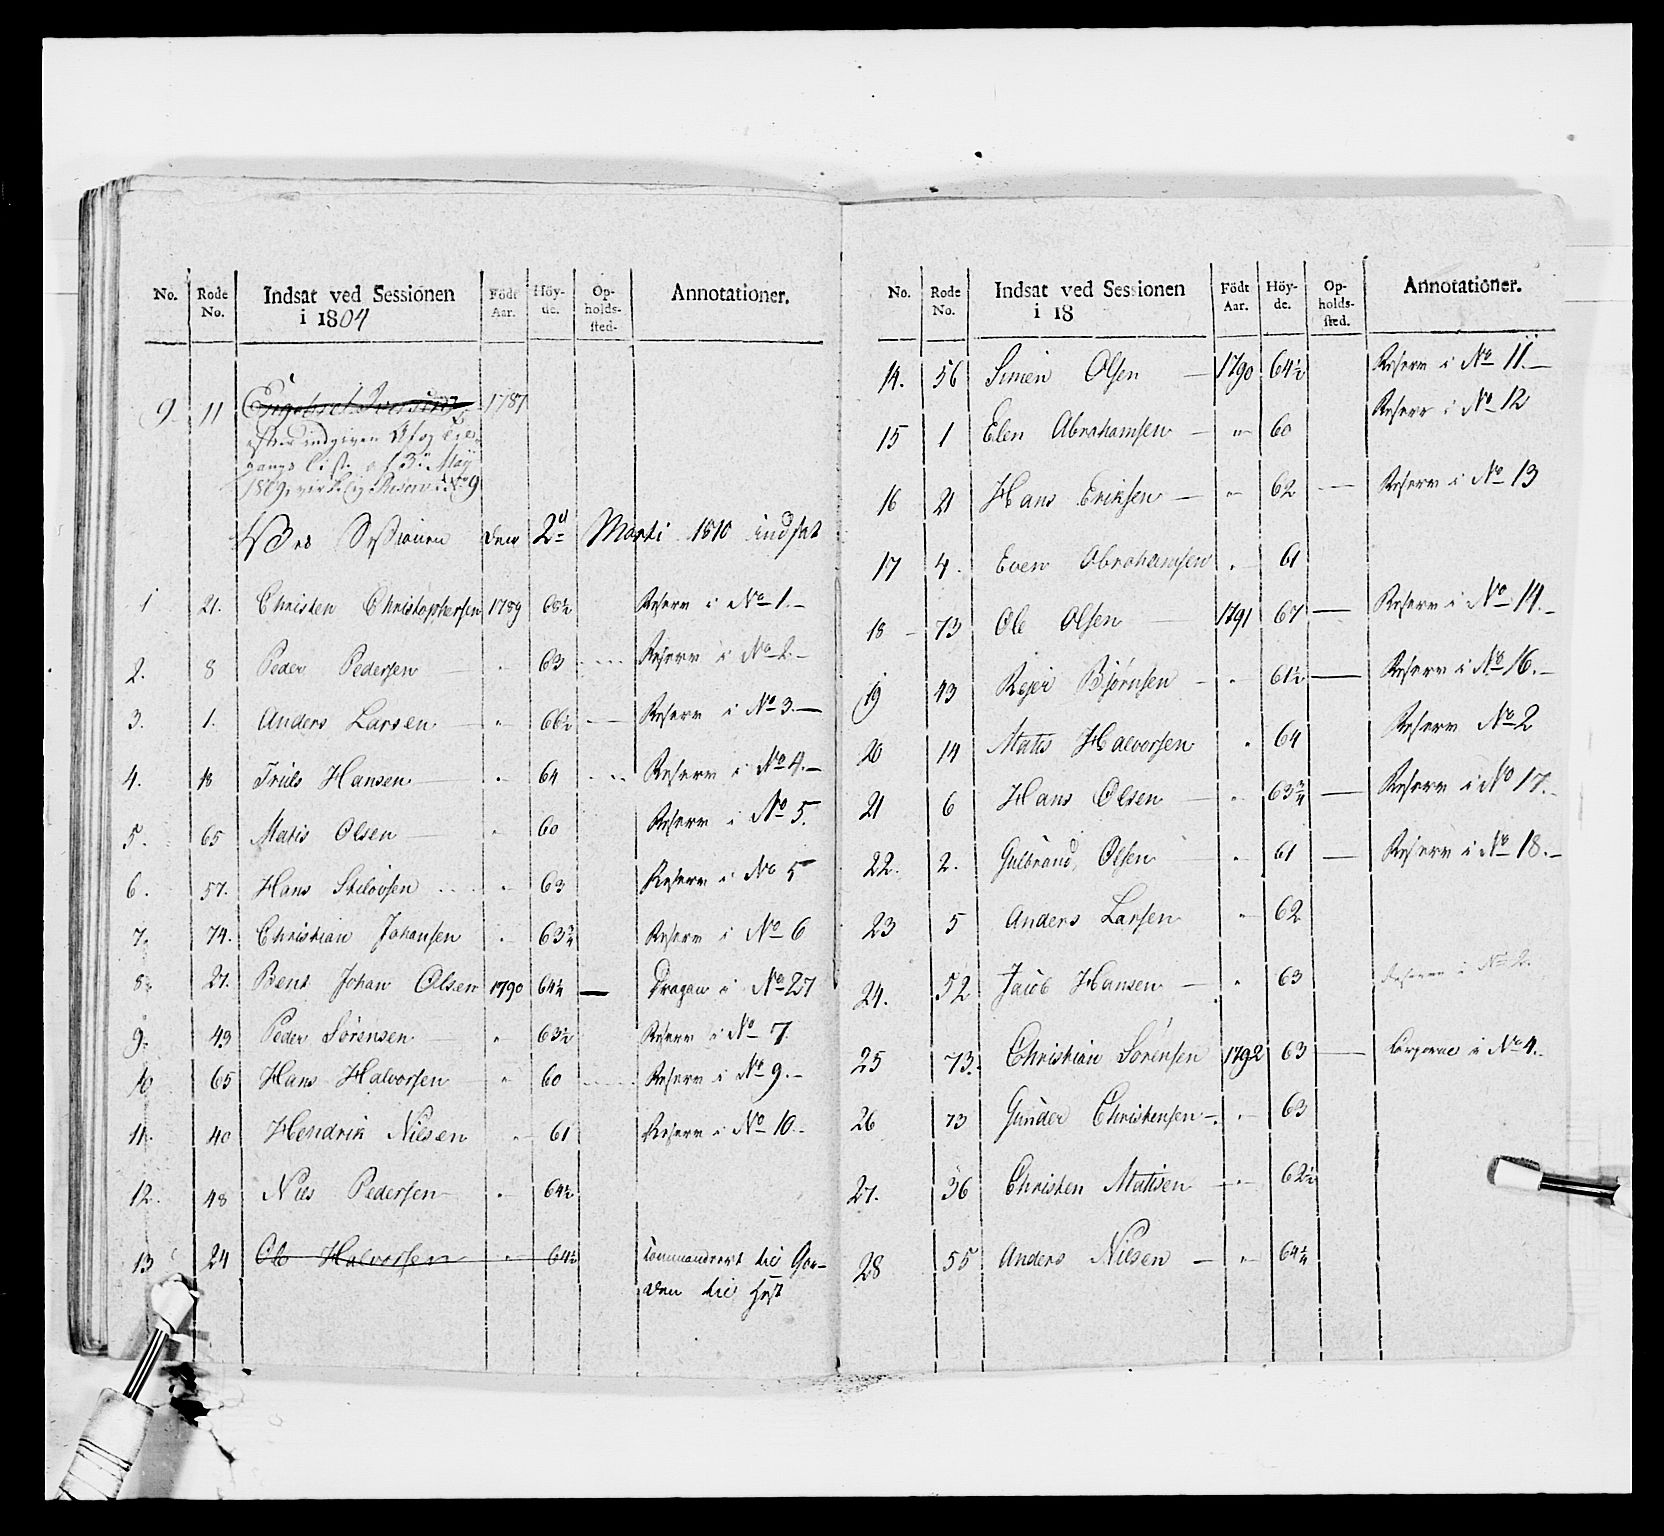 No. Rode No. Indsat ved Sessionen i 1804 Födt Aar. Höy- de. Op- holds- sted. Annotationer.
9. 11 1787
efter indgiven Af og Til-
gangs List. af 3. May
1809,
Ved Sessionen den 2d Marti 1810 indsat
1 21. Christen Christophersen 1789 65½ Reserv i No 1.-
2. 8 Peder Pedersen - " 63 Reserv i No 2.-
3. 1. Anders Larsen - " 66½ Reserv i No 3.-
4. 18 Truls Hansen - " 64 Reserv i No 4.-
5. 65 Matis Olsen - " 60 Reserv i No 5.
6. 57. Hans " 63 Reserv i No 5
7. 74. Christian Johansen " 63¾ Reserv i No 6
8. 27. Bent Johan Olsen 1790 64¼ - Dragon i No 27
9. 43 Peder Sørensen " 63½ Reserv i No 7.
10 65 Hans Halvorsen " 60 Reserv i No 9.-
11. 40 Hendrik Nilsen " 61 Reserv i No 10.-
12. 48 Nils Pedersen " 64½
13 24 Ole Halvorsen " 64½ Commanderet til Gar-
den til Hest
No. Rode No. Indsat ved Sessionen i 18 Födt Aar. Höy- de. Op- holds- sted. Annotationer.
14. 56 Simen Olsen - 1790 64½ Reserv i No 11.-
15 1 Elen Abrahamsen - " 60 Reserv i No 12
16 21 Hans Eriksen - " 62 - Reserv i No 13
17 4. Even Abrahamsen " 61
18 - 73 Ole Olsen - 1791 67 - Reserv i No 14.-
19 43 Rejer Bjørnsen - " 61½ - Reserv i No 16.-
20 14 Matis Halvorsen " 64 Reserv No 2
21 6 Hans Olsen - " 63¾ - Reserv i No 17.-
22. 2. Gulbrand Olsen - " 61 - Reserv i No 18.-
23 5 Anders Larsen " 62
24. 52 Jacob Hansen - " 63 Reserv i No 2.
25 73. Christian Sørensen 1792 63 - i No 4.-
26 73 Gunder Christensen - " 63
27. 36 Christen Matisen - " 62½
28 55 Anders Nilsen - " 64¼